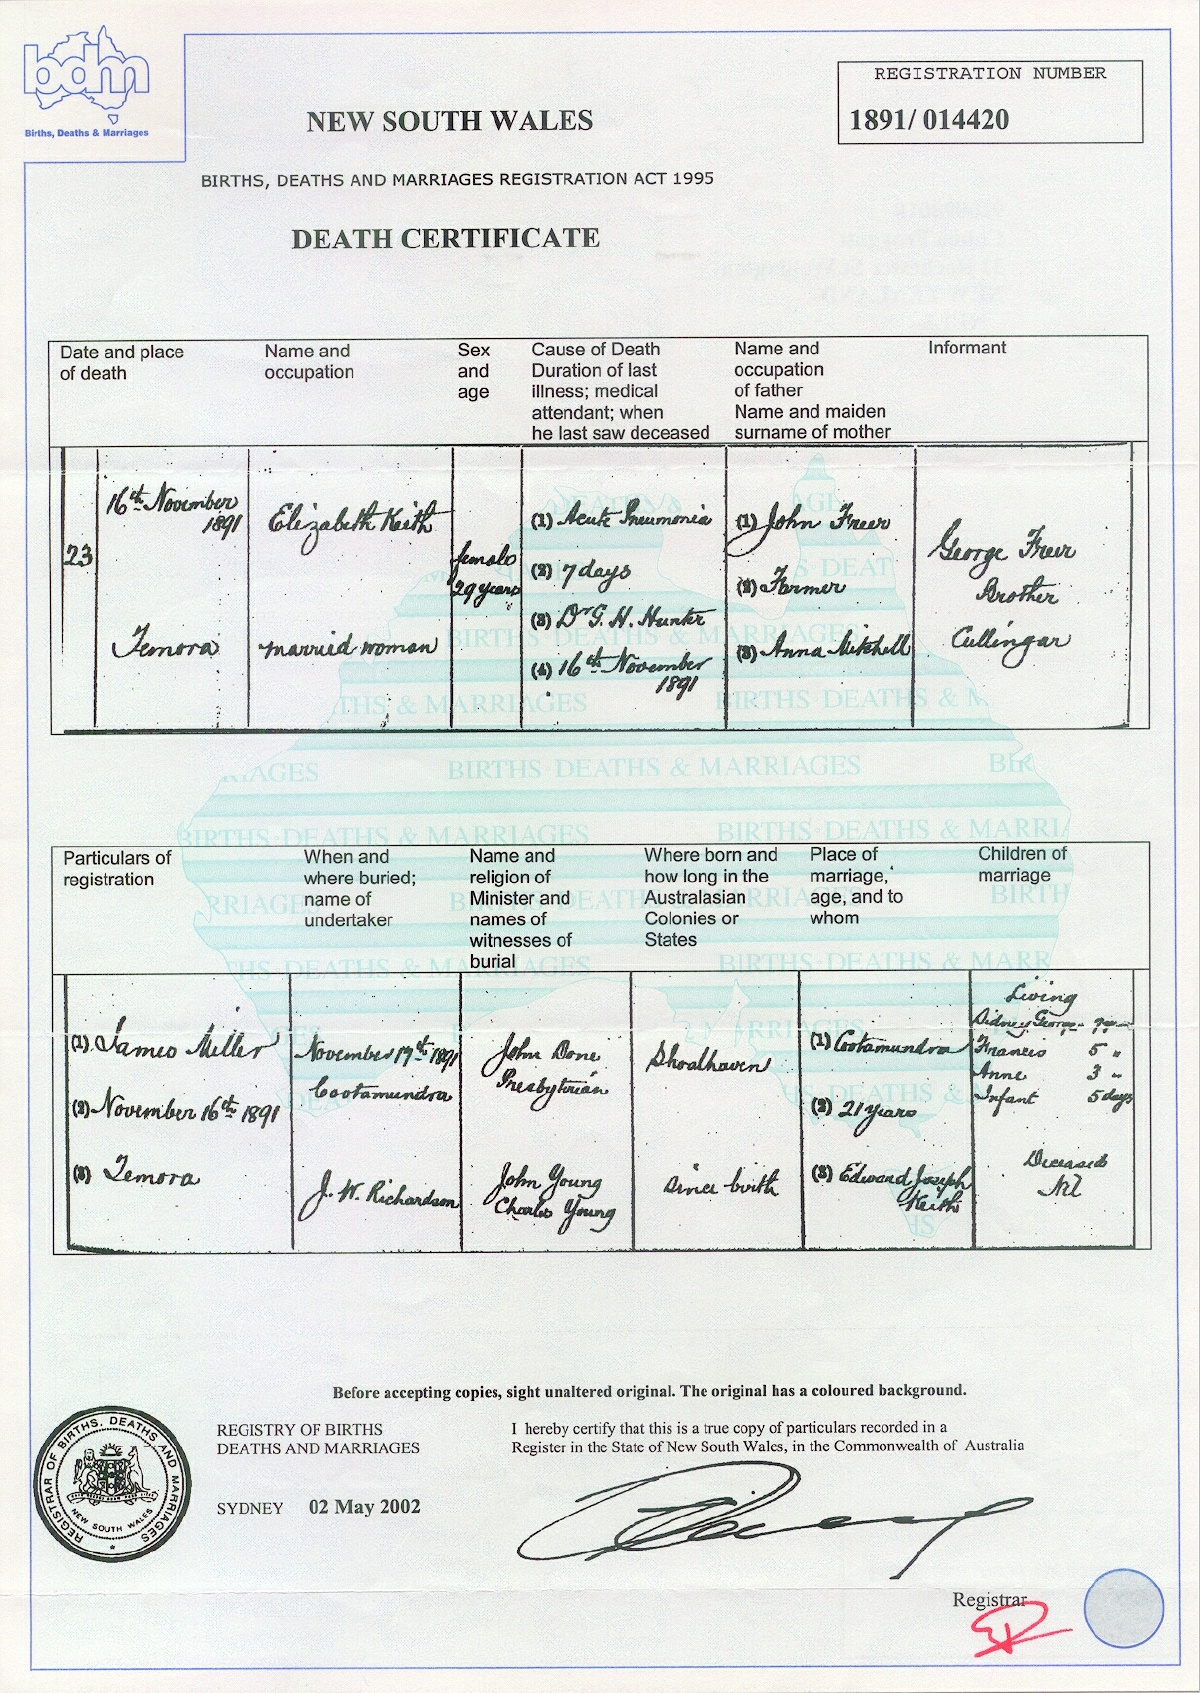 bdm
Births, Deaths & Marriages
REGISTRATION NUMBER
1891/ 014420
NEW SOUTH WALES
BIRTHS, DEATHS AND MARRIAGES REGISTRATION ACT 1995
DEATH CERTIFICATE
Date and place
of death
Name and
occupation
Sex
and
age
Cause of Death
Duration of last
illness; medical
attendant; when
he last saw deceased
Name and
occupation
of father
Name and maiden
surname of mother
Informant
23
16th November
1891
Temora
Elizabeth Keith
married woman
female
29 years
(1) Acute Pneumonia
(2) 7 days
(3) Dr G. H. Hunter
(4) 16th November
1891
(1) John Freer
(2) Farmer
(3) Anna Mitchell
George Freer
Brother
Cullingar
Particulars of
registration
When and
where buried;
name of
undertaker
Name and
religion of
Minister and
names of
witnesses of
burial
Where born and
how long in the
Australasian
Colonies or
States
Place of
marriage,
age, and to
whom
Children of
marriage
(1) James Miller
(2) November 16th 1891
(3) Temora
November 17th 1891
Cootamundra
J. W. Richardson
John Done
Presbyterian
John Young
Charles Young
Shoalhaven
Since birth
(1) Cootamundra
(2) 21 years
(3) Edward Joseph
Keith
Living
Sidney George
Francis 5 "
Anne 3 "
Infant 5 days
Deceased
Nil
Before accepting copies, sight unaltered original. The original has a coloured background.
REGISTRY OF BIRTHS
DEATHS AND MARRIAGES
SYDNEY 02 May 2002
I hereby certify that this is a true copy of particulars recorded in a
Register in the State of New South Wales, in the Commonwealth of Australia
Registrar
REGISTRAR OF BIRTHS, DEATHS AND MARRIAGES
NEW SOUTH WALES